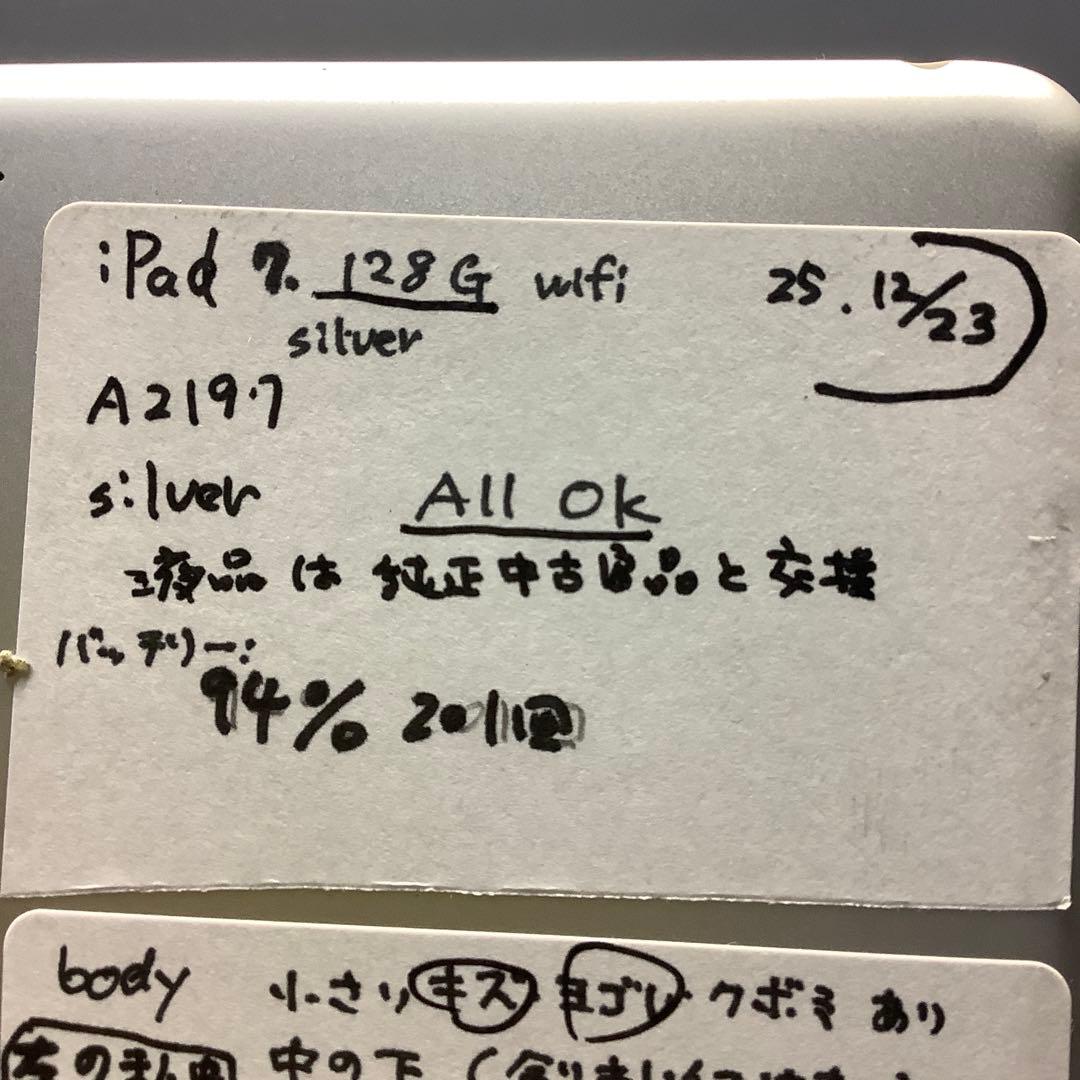 iPad 7. 128G wifi 25.12/23
silver
A2197
silver All Ok
液晶は純正中古部品と交換
バッテリー:
94% 201回
body 小さいキズ ヨゴレ クボミ あり
中の下